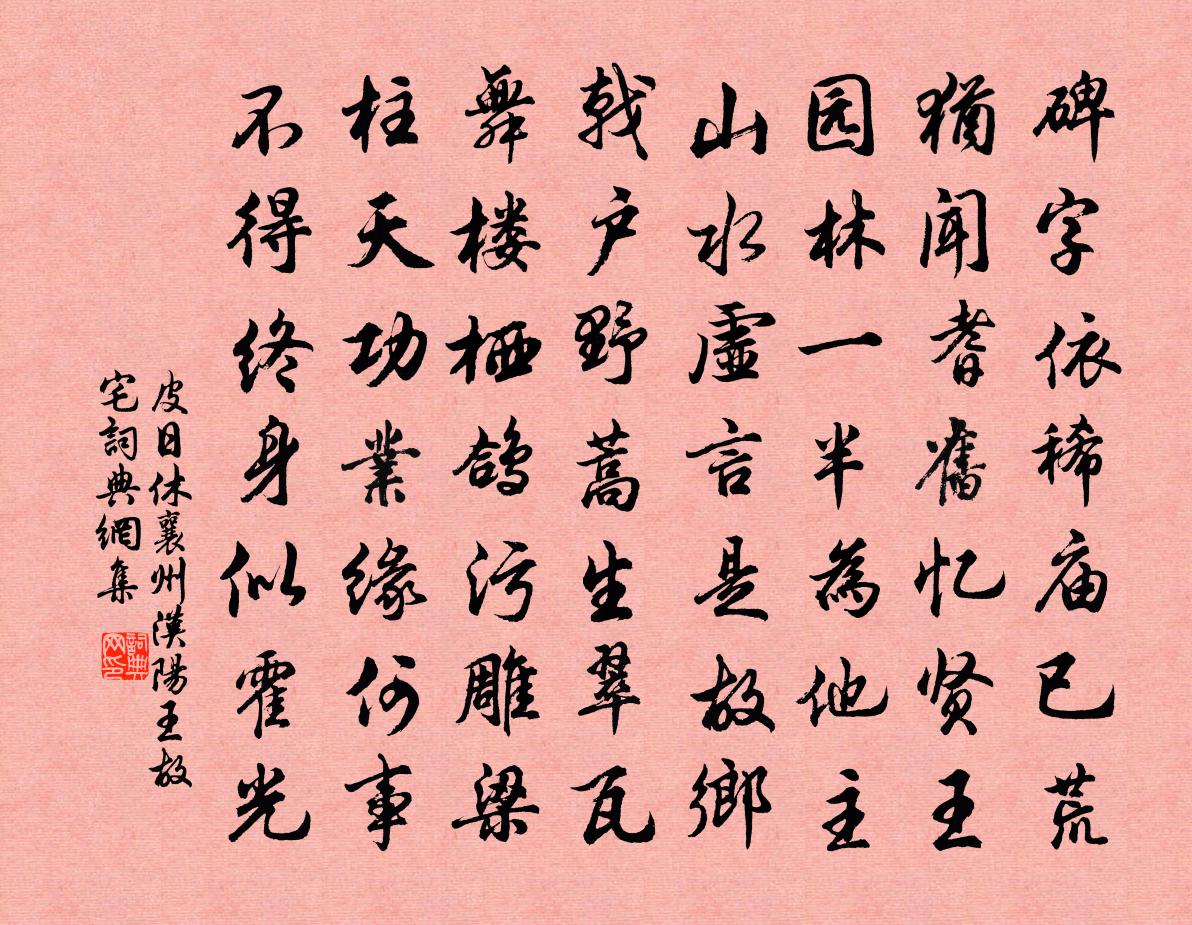 碑字依稀庙已荒
猶闻耆舊忆贤王
园林一半為他主
山水虛言是故鄉
戟户野蒿生翠瓦
舞楼栖鸽污雕梁
柱天功業緣何事
不得终身似霍光
皮日休襄州漢陽王故
宅詞典網集